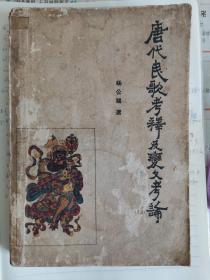 唐代民歌考释及变文考论
杨公骥 著